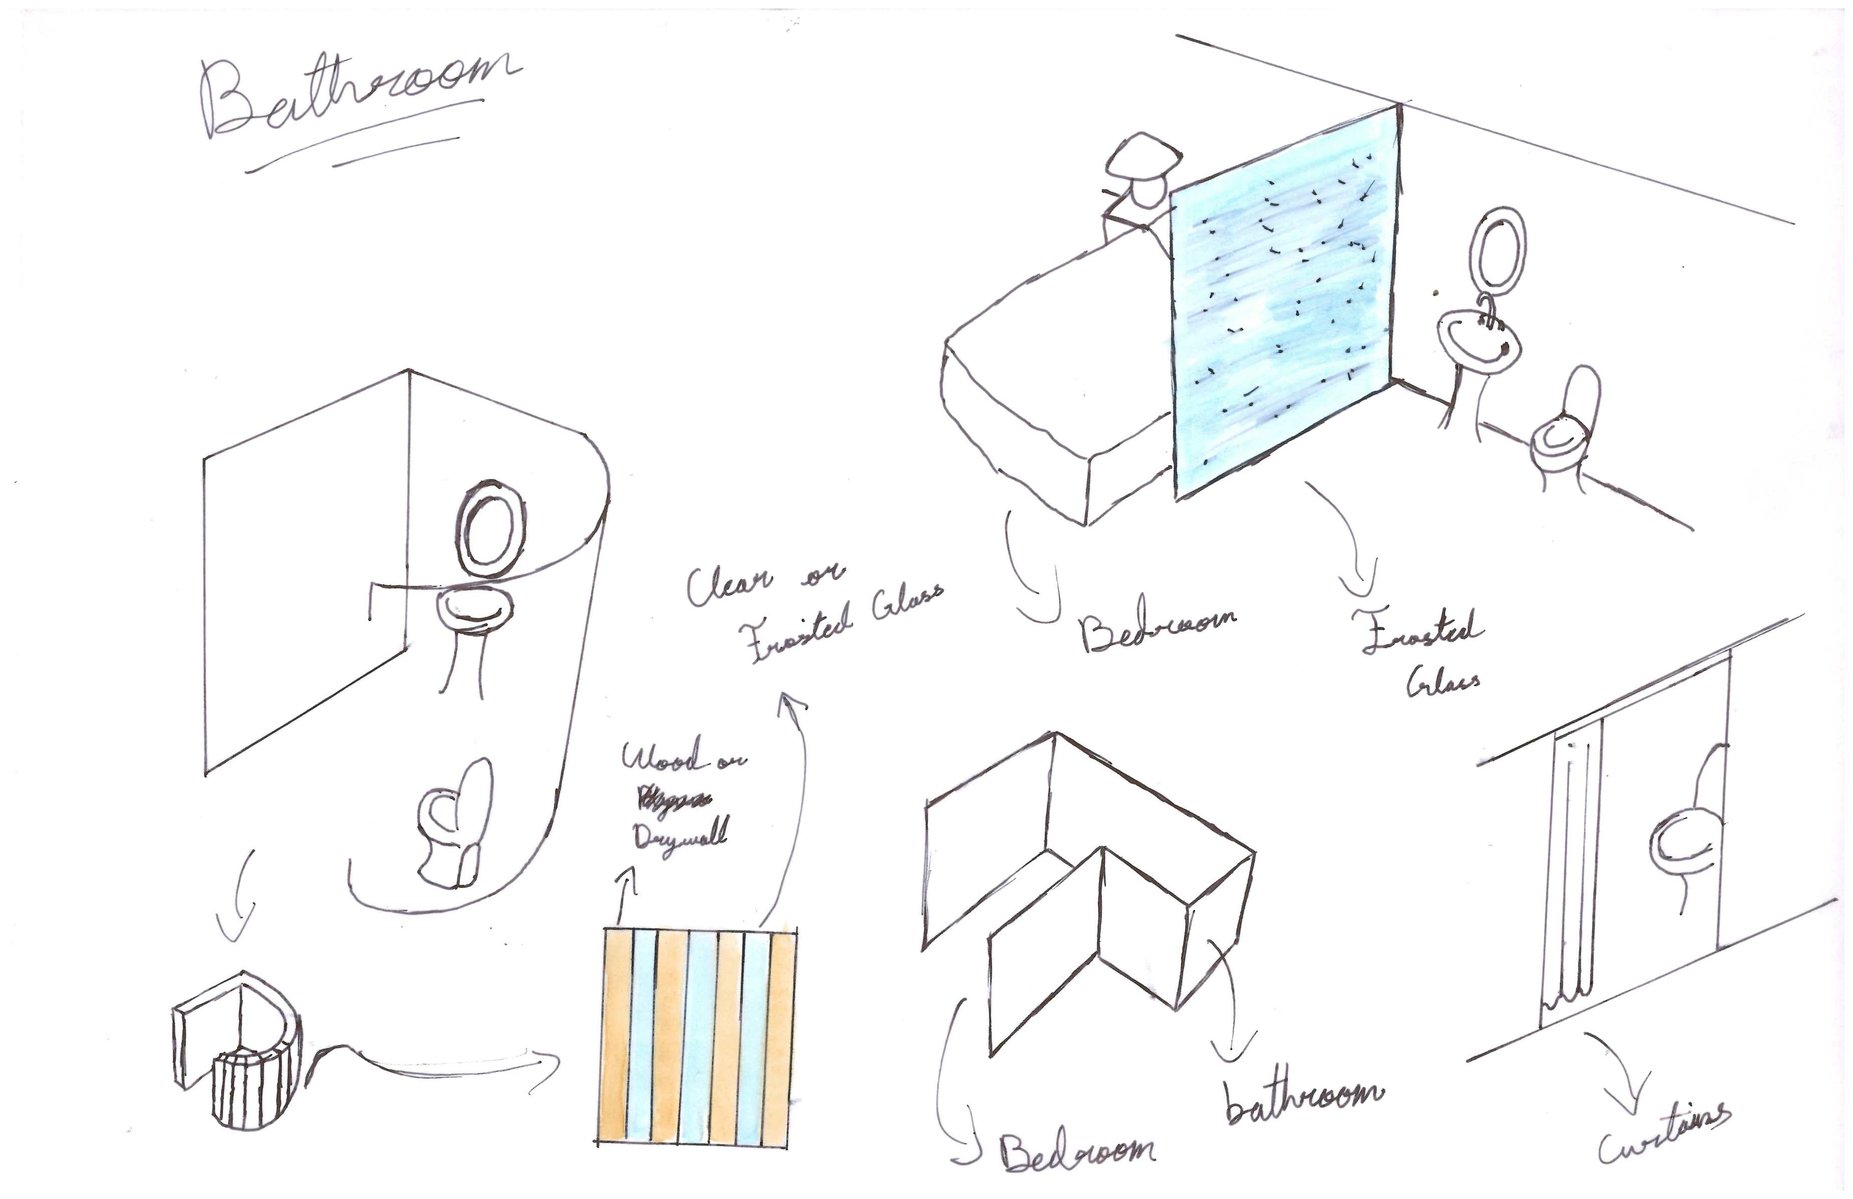 Bathroom
Clear or
Frosted Glass
Bedroom
Frosted
Glass
Wood or
Drywall
bathroom
Bedroom
Curtains